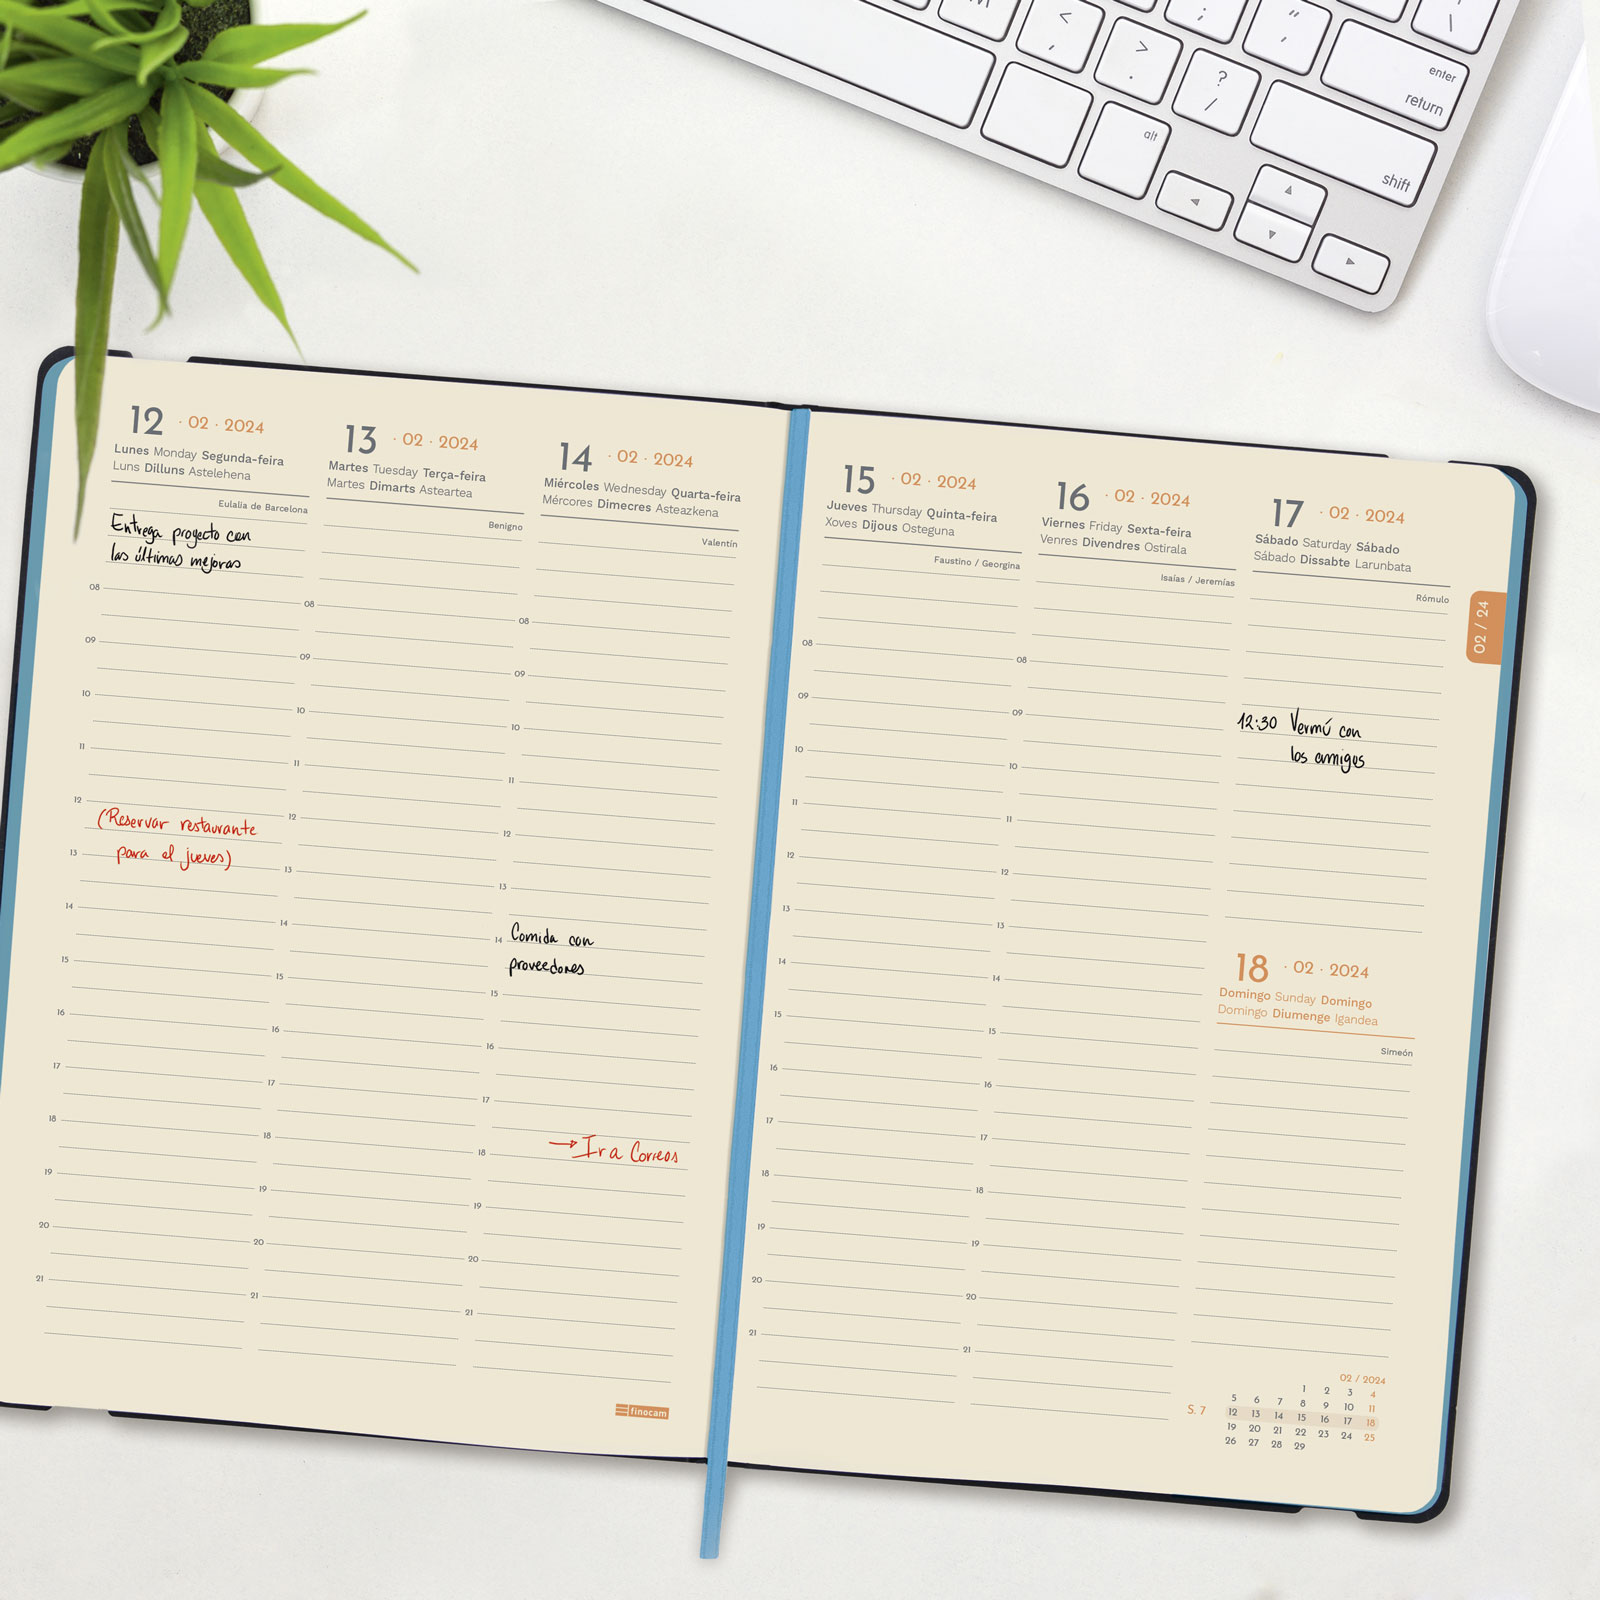 M
<
,
>
.
?
/
:
;
"
,
|
\
enter
return
alt
shift
12 · 02 · 2024
Lunes Monday Segunda-feira
Luns Dilluns Astelehena
Eulalia de Barcelona
Entrega proyecto con
las últimas mejoras
08
09
10
11
12
(Reservar restaurante
para el jueves)
13
14
15
16
17
18
19
20
21
13 · 02 · 2024
Martes Tuesday Terça-feira
Martes Dimarts Asteartea
Benigno
08
09
10
11
12
13
14
15
16
17
18
19
20
21
14 · 02 · 2024
Miércoles Wednesday Quarta-feira
Mércores Dimecres Asteazkena
Valentín
08
09
10
11
12
13
14 Comida con
proveedores
15
16
17
18 → Ir a Correos
19
20
21
finocam
15 · 02 · 2024
Jueves Thursday Quinta-feira
Xoves Dijous Osteguna
Faustino / Georgina
08
09
10
11
12
13
14
15
16
17
18
19
20
21
16 · 02 · 2024
Viernes Friday Sexta-feira
Venres Divendres Ostirala
Isaías / Jeremías
08
09
10
11
12
13
14
15
16
17
18
19
20
21
17 · 02 · 2024
Sábado Saturday Sábado
Sábado Dissabte Larunbata
Rómulo
12:30 Vermú con
los amigos
18 · 02 · 2024
Domingo Sunday Domingo
Domingo Diumenge Igandea
Simeón
02 / 24
02 / 2024
1 2 3 4
5 6 7 8 9 10 11
S. 7 12 13 14 15 16 17 18
19 20 21 22 23 24 25
26 27 28 29